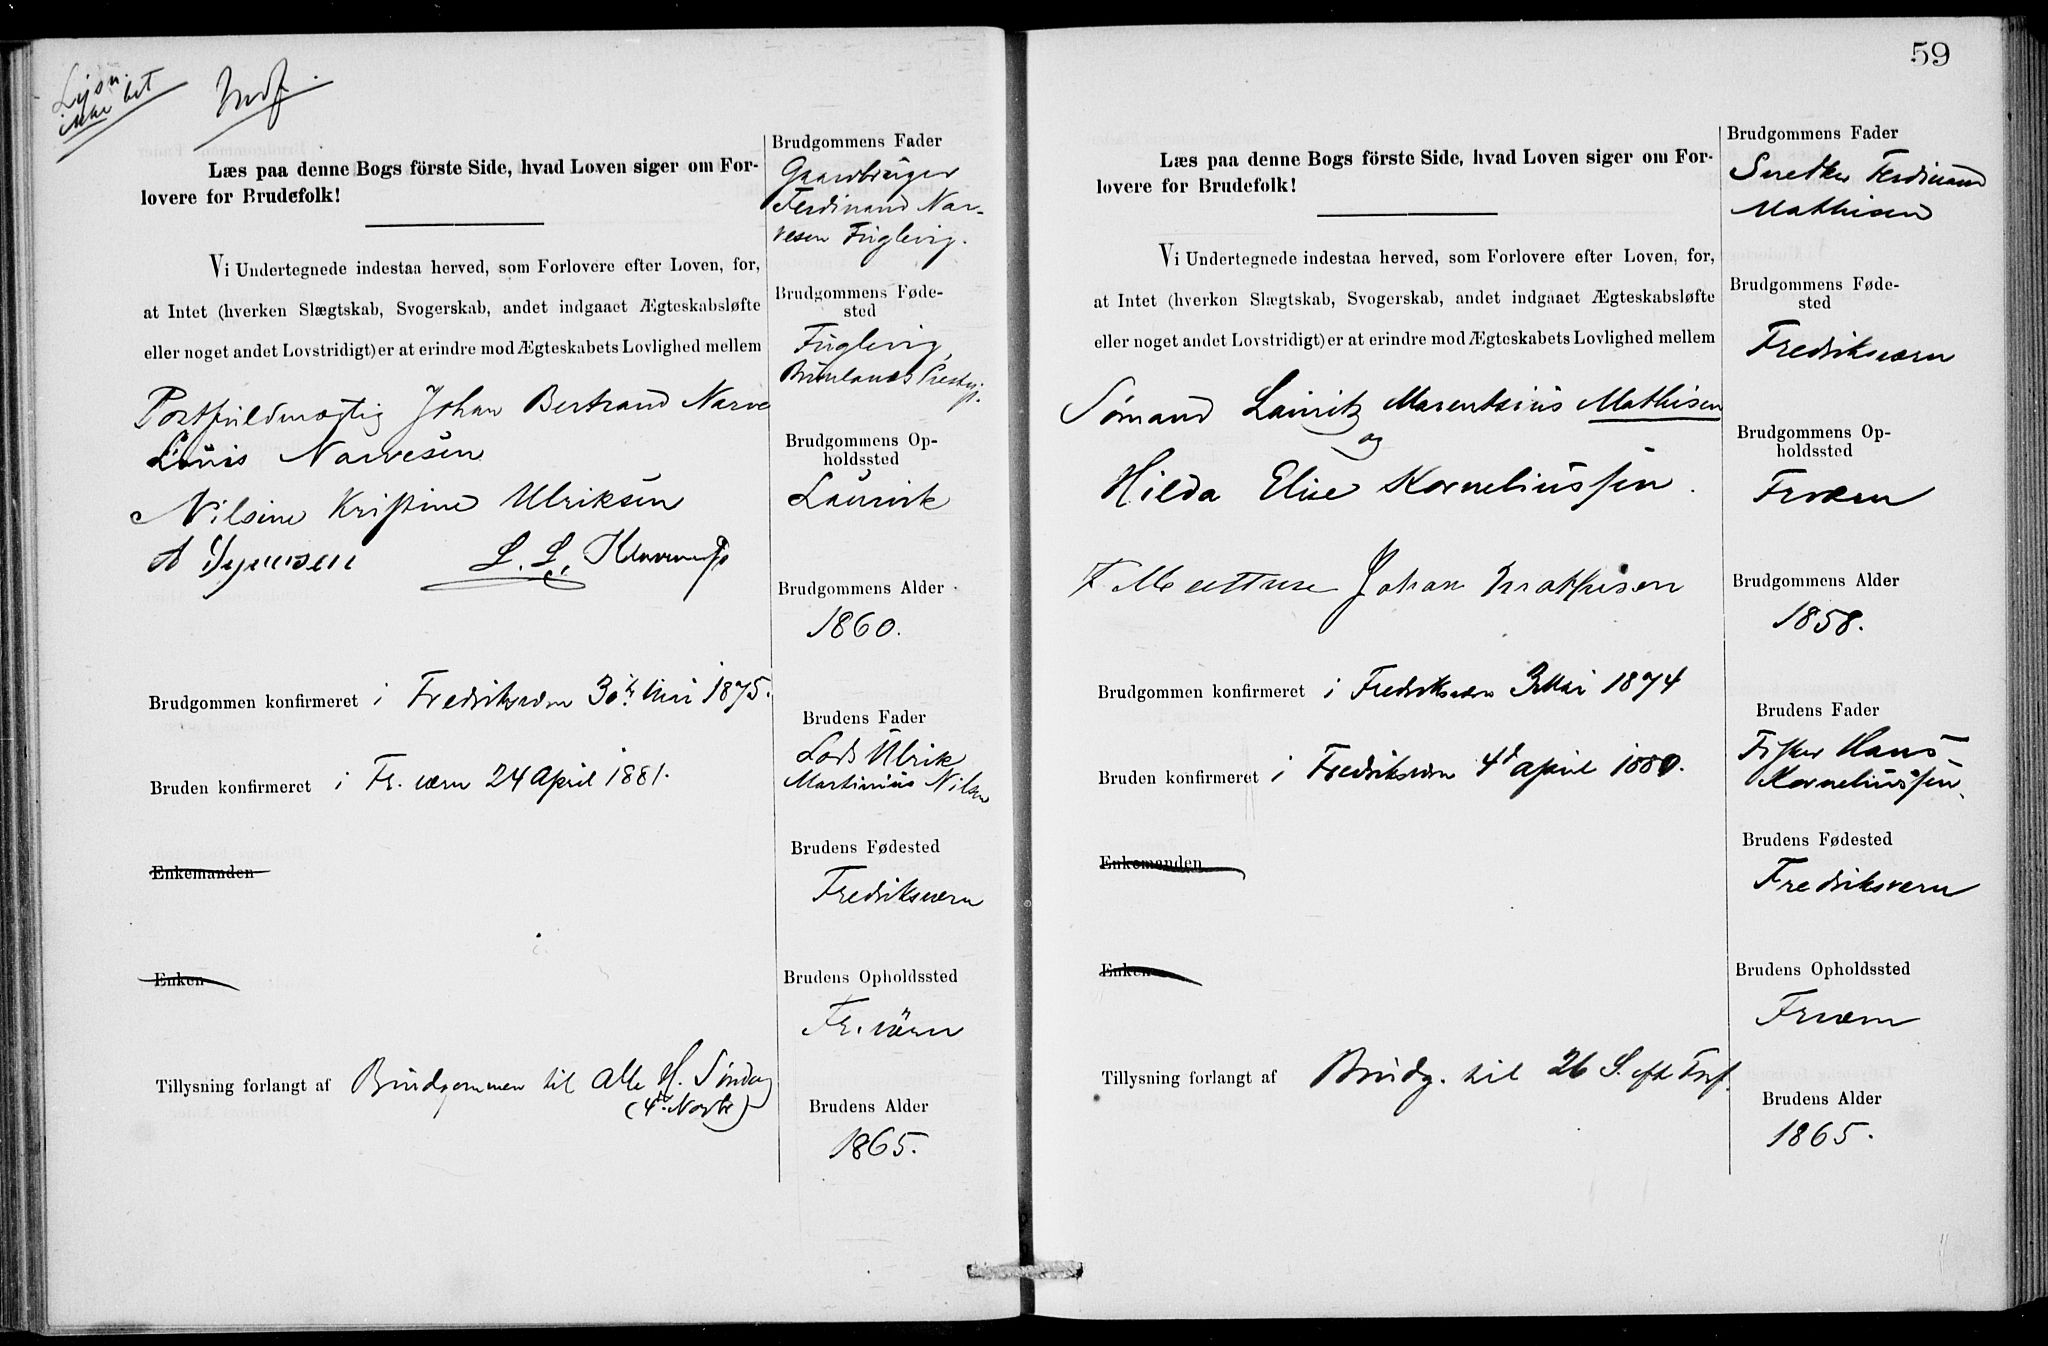 Lysn.
ikke bet
Indf.
Læs paa denne Bogs förste Side, hvad Loven siger om For-
lovere for Brudefolk!
Vi Undertegnede indestaa herved, som Forlovere efter Loven, for,
at Intet (hverken Slægtskab, Svogerskab, andet indgaaet Ægteskabsløfte
eller noget andet Lovstridigt) er at erindre mod Ægteskabets Lovlighed mellem
Postfuldmægtig Johan Bertrand Narve
Louis Narvesen
Nilsine Kristine Ulriksen
A L. L.
Brudgommen konfirmeret i Fredriksværn 30te Mai 1875.
Bruden konfirmeret i Fr. værn 24 April 1881.
Enkemanden
Enken
Tillysning forlangt af Brudgommen til Alle H. Søndag
(4de Novbr)
Brudgommens Fader
Gaardbruger
Ferdinand Nar-
vesen Fuglevig.
Brudgommens Føde-
sted
Fuglevig,
Brunlanæs Prestgj.
Brudgommens Op-
holdssted
Laurvik
Brudgommens Alder
1860.
Brudens Fader
Lods Ulrik
Martinius Nilsen
Brudens Fødested
Fredriksværn
Brudens Opholdssted
Fr. værn
Brudens Alder
1865.
59
Læs paa denne Bogs förste Side, hvad Loven siger om For-
lovere for Brudefolk!
Vi Undertegnede indestaa herved, som Forlovere efter Loven, for,
at Intet (hverken Slægtskab, Svogerskab, andet indgaaet Ægteskabsløfte
eller noget andet Lovstridigt) er at erindre mod Ægteskabets Lovlighed mellem
Sømand Lauritz Marentsius Mathisen
og
Hilda Elise Korneliussen.
F. Johan Mathisen
Brudgommen konfirmeret i Fredriksværn 3 Mai 1874
Bruden konfirmeret i Fredriksværn 4de april 1880.
Enkemanden
Enken
Tillysning forlangt af Brudg. til 26 S. eft Tref.
Brudgommens Fader
Snedker Ferdinand
Mathisen
Brudgommens Føde-
sted
Fredriksværn
Brudgommens Op-
holdssted
Frværn
Brudgommens Alder
1858.
Brudens Fader
Fisker Hans
Korneliussen.
Brudens Fødested
Fredriksvern
Brudens Opholdssted
Frværn
Brudens Alder
1865.